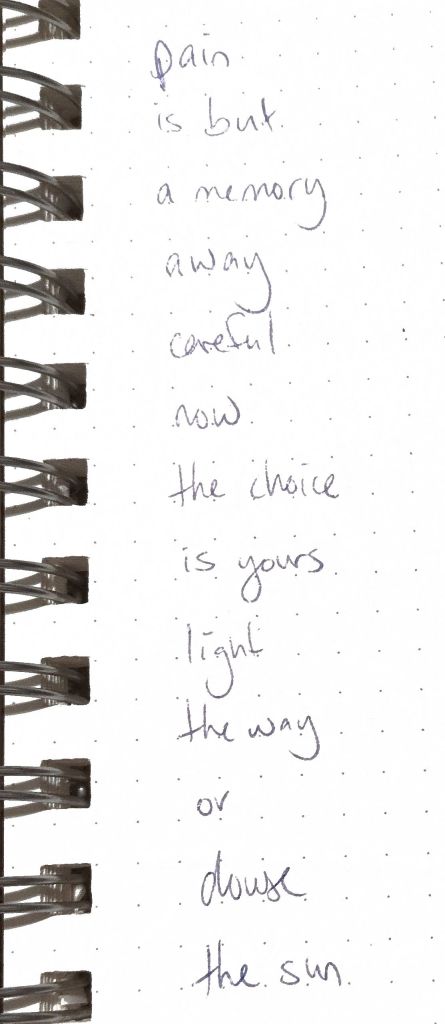 pain
is but
a memory
away
careful
now
the choice
is yours
light
the way
or
douse
the sun